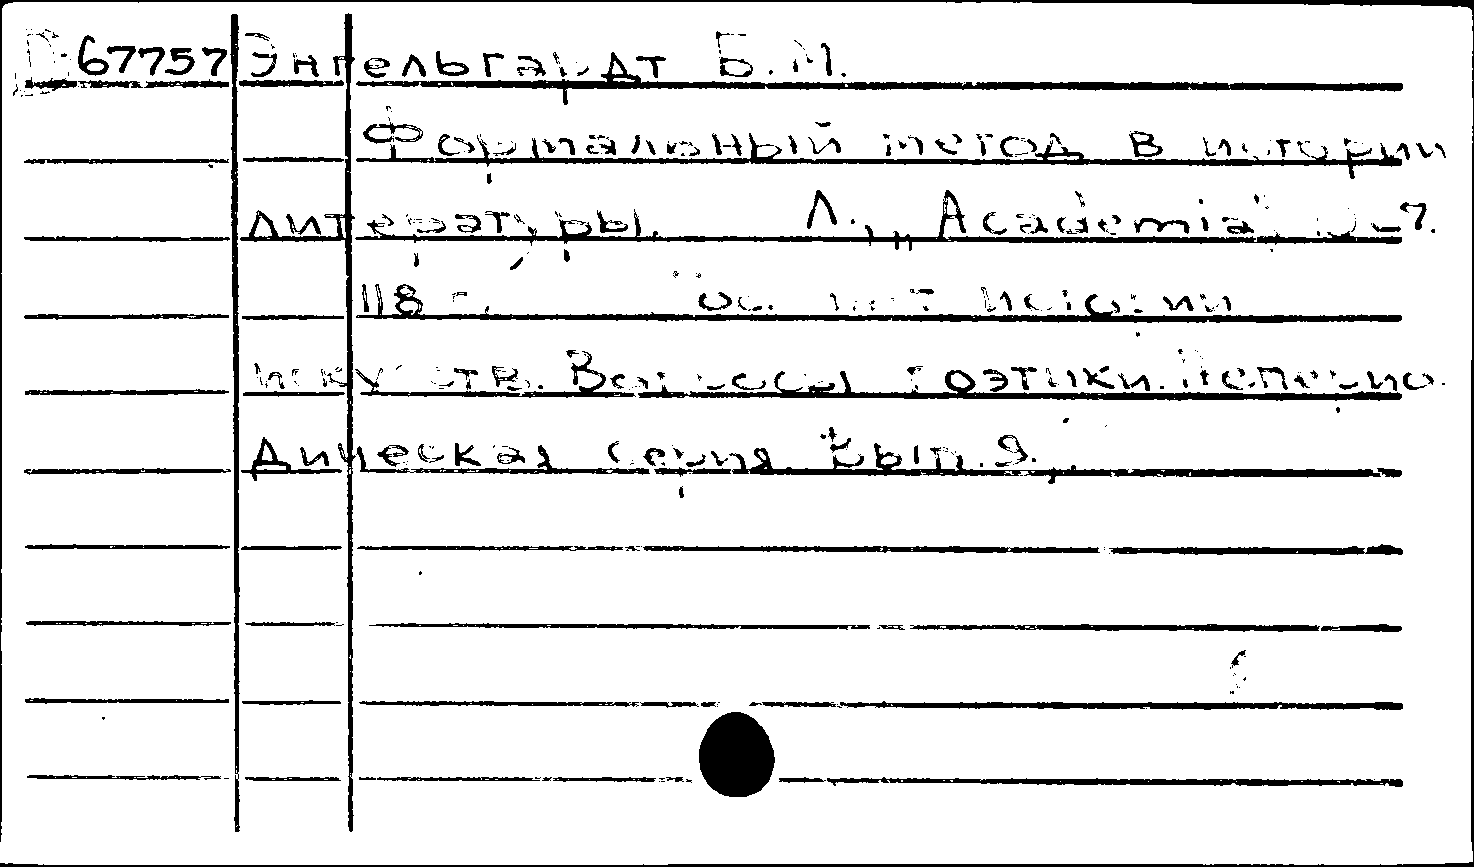 67757 Энгельгардт Б.М.
Формальный метод в истории
литературы. Л., „Academia",
118 с. Гос. инст истории
искусств. Вопросы поэтики. Неперио-
дическая серия. Вып.